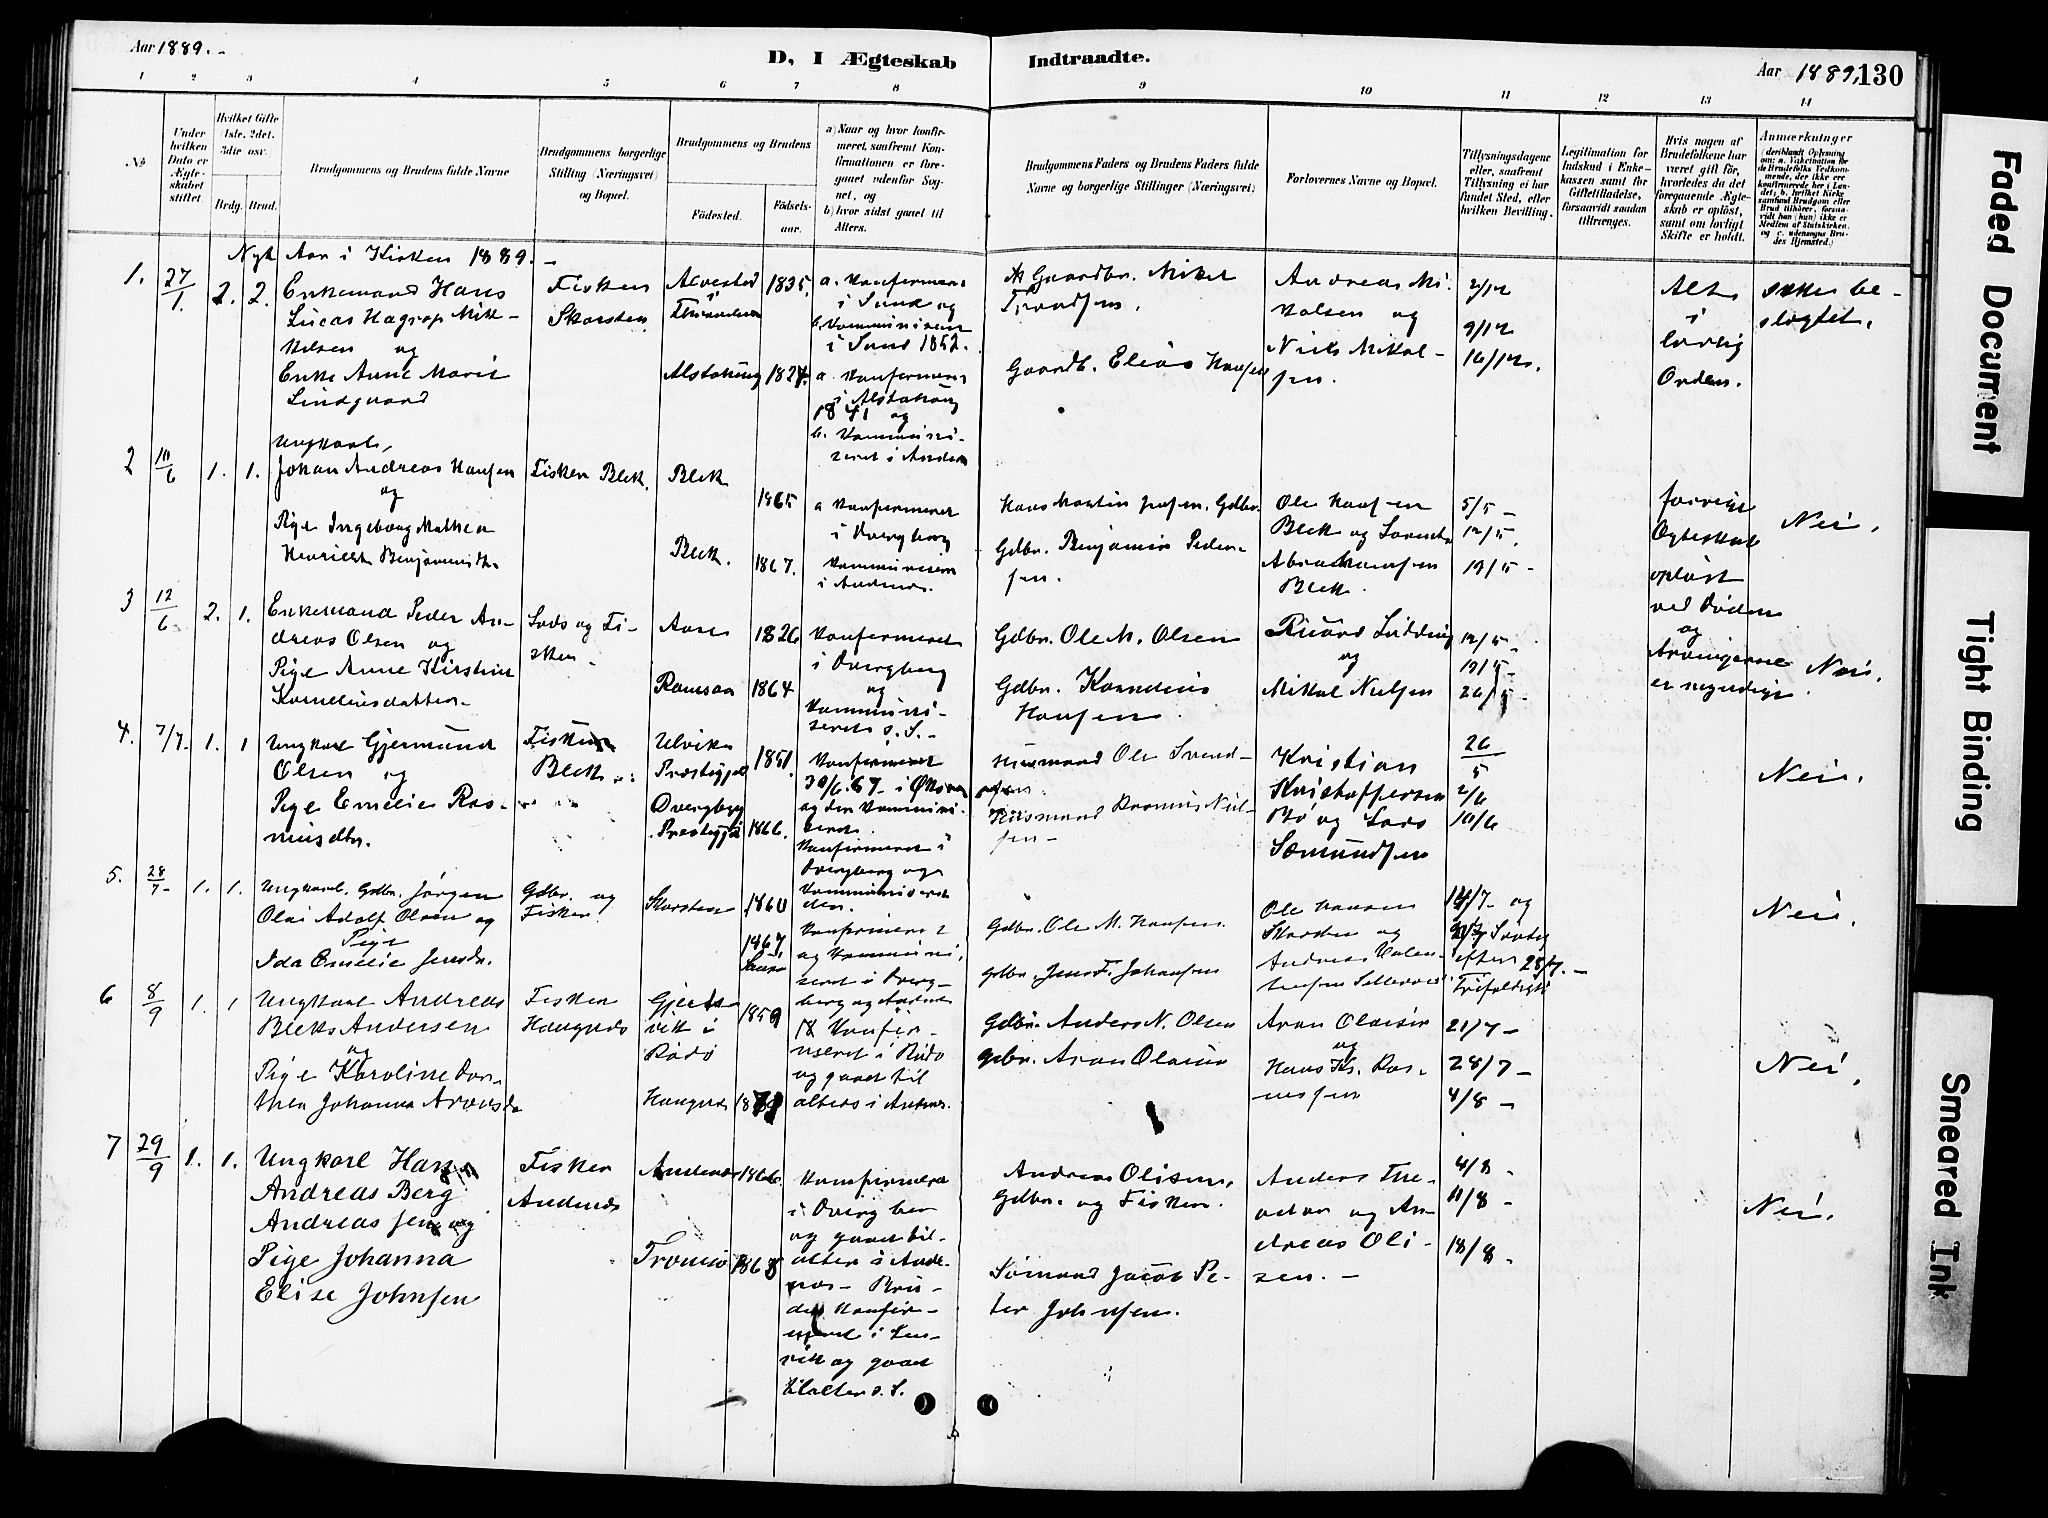 Aar 1889.-
D, I Ægteskab
Indtraadte.
Aar 1889. 130
1 2 3 4 5 6 7 8 9 10 11 12 13 14
No
Under hvilken Dato er Ægteskabet stiftet.
Hvilket Gifte (1ste, 2det, 3die osv.
Brdg. Brud.
Brudgommens og Brudens fulde Navne
Brudgommens borgerlige Stilling (Næringsvei) og Bopæl.
Brudgommens og Brudens
Fødested.
Fødselsaar.
a) Naar og hvor konfirmeret, saafremt Konfirmationen er foregaaet udenfor Sognet, og
b) hvor sidst gaaet til Alters.
Brudgommens Faders og Brudens Faders fulde Navne og borgerlige Stillinger (Næringsvei)
Forlovernes Navne og Bopæl.
Tillysningsdagene eller, saafremt Tillysning ei har fundet Sted, efter hvilken Bevilling.
Legitimation for Indskud i Enkekassen samt for Giftetilladelse, forsaavidt saadan tiltrænges.
Hvis nogen af Brudefolkene har været gift før, hvorledes da det foregaaende Ægteskab er opløst, samt om lovligt Skifte er holdt.
Anmærkninger
(deriblandt Oplysning om: a. Vakcination for de Brudefolks Vedkommende, der ikke ere konfirmerede her i Landet; b. hvilket Kirkesamfund Brudgom eller Brud tilhører, forsaavidt han (hun) ikke er Medlem af Statskirken, og c. udensogns Brudes Hjemsted.)
Nyt Aar i Kirken 1889.-
1. 27/1. 2. 2. Enkemand Hans
Lucas Hagrop Mik-
kelsen og
Enke Anne Marit
Lindgaard
Fisker
Skarsten
1835.
Alstahaug 1824.
a. Konfirmeret
i Sand og
i Sand 1852.
a. Konfirmeret
i Alstahaug
1841 og
Gaardbr. Mikel
Trondsen.
Gaardb. Elias Hansen
Andreas Mi-
kalsen og
Niels Mikal-
sen.
2/12
9/12
16/12.
Alt
i
lovlig
Orden.
ikke be-
slægtet.
2 10/6 1. 1. Ungkarl,
Johan Andreas Hansen
og
Pige Ingeborg Mathea
Henriette Benjaminsdtr.
Fisker Blek.
Blek 1865
Blek. 1867.
a Konfirmeret
i Dverberg
i Andenes.
Gdbr. Benjamin Peder-
sen.
Ole Hansen
Blek og
Blek.
5/5 -
12/5.
19/5 -
forrige
Ægteskab
opløst
ved Døden
og
Arvingerne
er myndige.
Nei.
3 12/6 2. 1. Enkemand Peder An-
dreas Olsen og
Pige Anne Kirstine
Korneliusdatter.
Lods og Fi-
sker -
1826
Ramsaa 1864
Konfirmeret
i Dverberg
og
Kommuni-
seret s. S.-
Gdbr. Ole M. Olsen
Gdbr. Kornelius
Hansen
og
Mikal Nielsen
12/5 -
19/5 -
26/5 -
Nei.
4. 7/7. 1. 1 Ungkarl Gjermund
Olsen og
Pige Emelie Ras-
musdtr.
Fisker
Blek
Ulvik
Præstegjeld 1851.
Dverberg
Præstegjeld 1866.
Konfirmeret
Husmand Ole Svend-
sen.
Husmand Rasmus Niel-
sen -
Kristian
Kristoffersen
Bø og Lars
Sæmundsen
26/5
2/6
10/6
Nei.
5. 28/7- 1. 1. Ungkarl. Gdbr. Jørgen
Olai Adolf Olsen og
Pige
Ida Emelie Jensdr.
Gdbr. og
Fisker
Skarsten 1860
1867
Konfirmeret i
Dverberg og
Konfirmeret
og Kommuni-
seret i Dverg-
berg og Andenes
Gdbr. Ole M. Hansen.
Gdbr. Jens F. Johansen
Ole Hansen
Skarsten og
Andreas
14/7- og
efter 28/7. -
Trifoldigh.
Nei.
6 8/9 1. 1 Ungkarl Andreas
Bleks Andersen
og
Pige Karoline Dor-
thea Johanna Aronsdr
Fisker
Haugnes
vik i
Rødø 1859
Haugnes
Konfir-
meret i Rødø
og gaaet til
alters i Andenes.
Gdbr. Anders N. Olsen
Gdbr. Aron Olaisen
Aron Olaisen
og
Hans Kr. Ras-
mussen
21/7 -
28/7 -
4/8 -
Nei.
7 29/9 1. 1. Ungkarl Hans
Andreas Berg
Andreassen og
Pige Johanna
Elise Johnsen
Fisker
Andenes
Andenes 1866.
Tromsø 1868
Konfirmeret
i Dverberg
og gaaet til
alters i Ande-
nes - Bru-
den Konfir-
meret i Len-
vik og gaaet
til alters s. S.
Andreas Olisen,
Gdbr. og Fisker.
Sømand Jacob Pe-
ter Johnsen.
Anders The-
odor og An-
dreas Oli-
sen. -
4/8 -
11/8 -
18/8 -
Nei.
Faded Document
Tight Binding
Smeared Ink